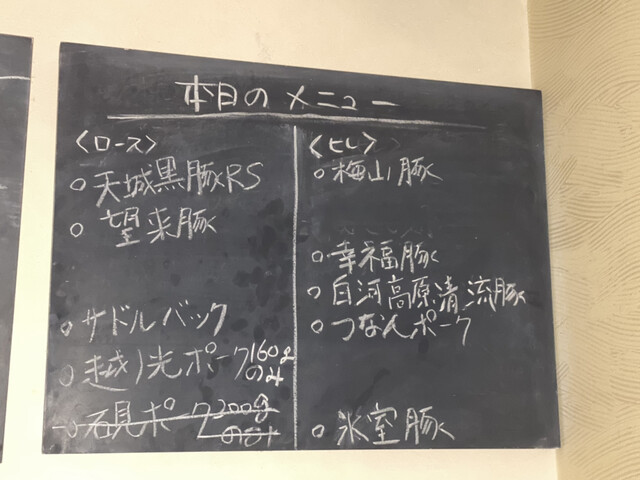 本日のメニュー
〈ロース〉
○天城黒豚RS
○望来豚
○サドルバック
○越ノ光ポーク160gのみ
○石見ポーク200gのみ
〈ヒレ〉
○梅山豚
○幸福豚
○白河高原清流豚
○つなんポーク
○氷室豚